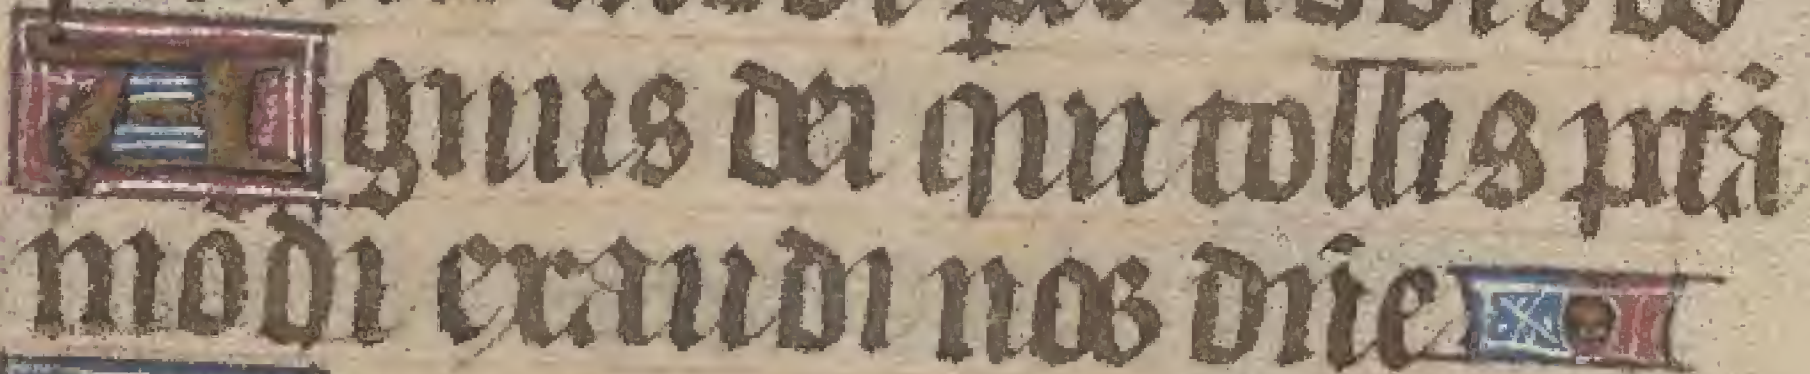 Agnus dei qui tollis pctā
mōdi exaudi nos dn̄e